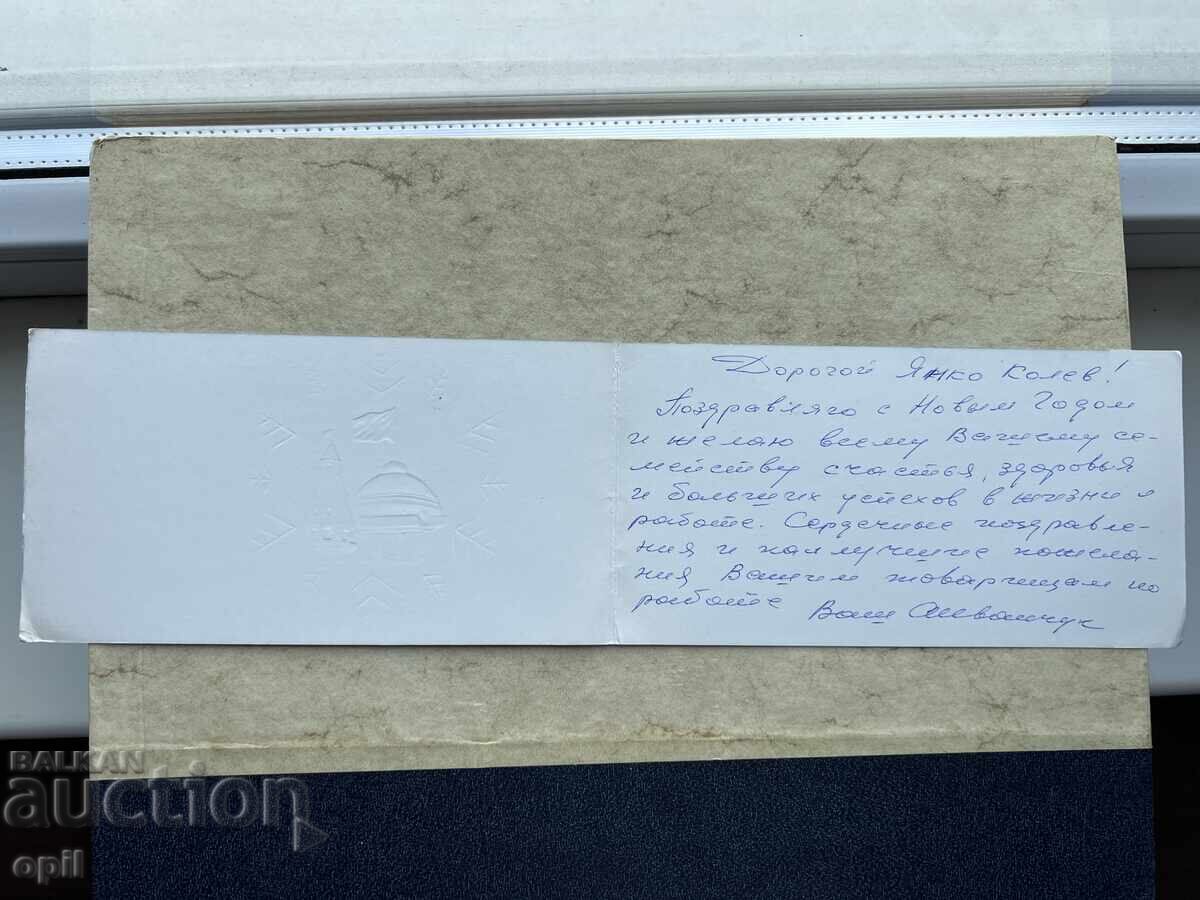 Дорогой Янко Колев!
Поздравляю с Новым Годом
и желаю всему Вашему се-
мейству счастья, здоровья
и больших успехов в жизни и
работе. Сердечные поздравле-
ния и наилучшие пожела-
ния Вашим товарищам по
работе Ваш
BALKAN
auction
opil